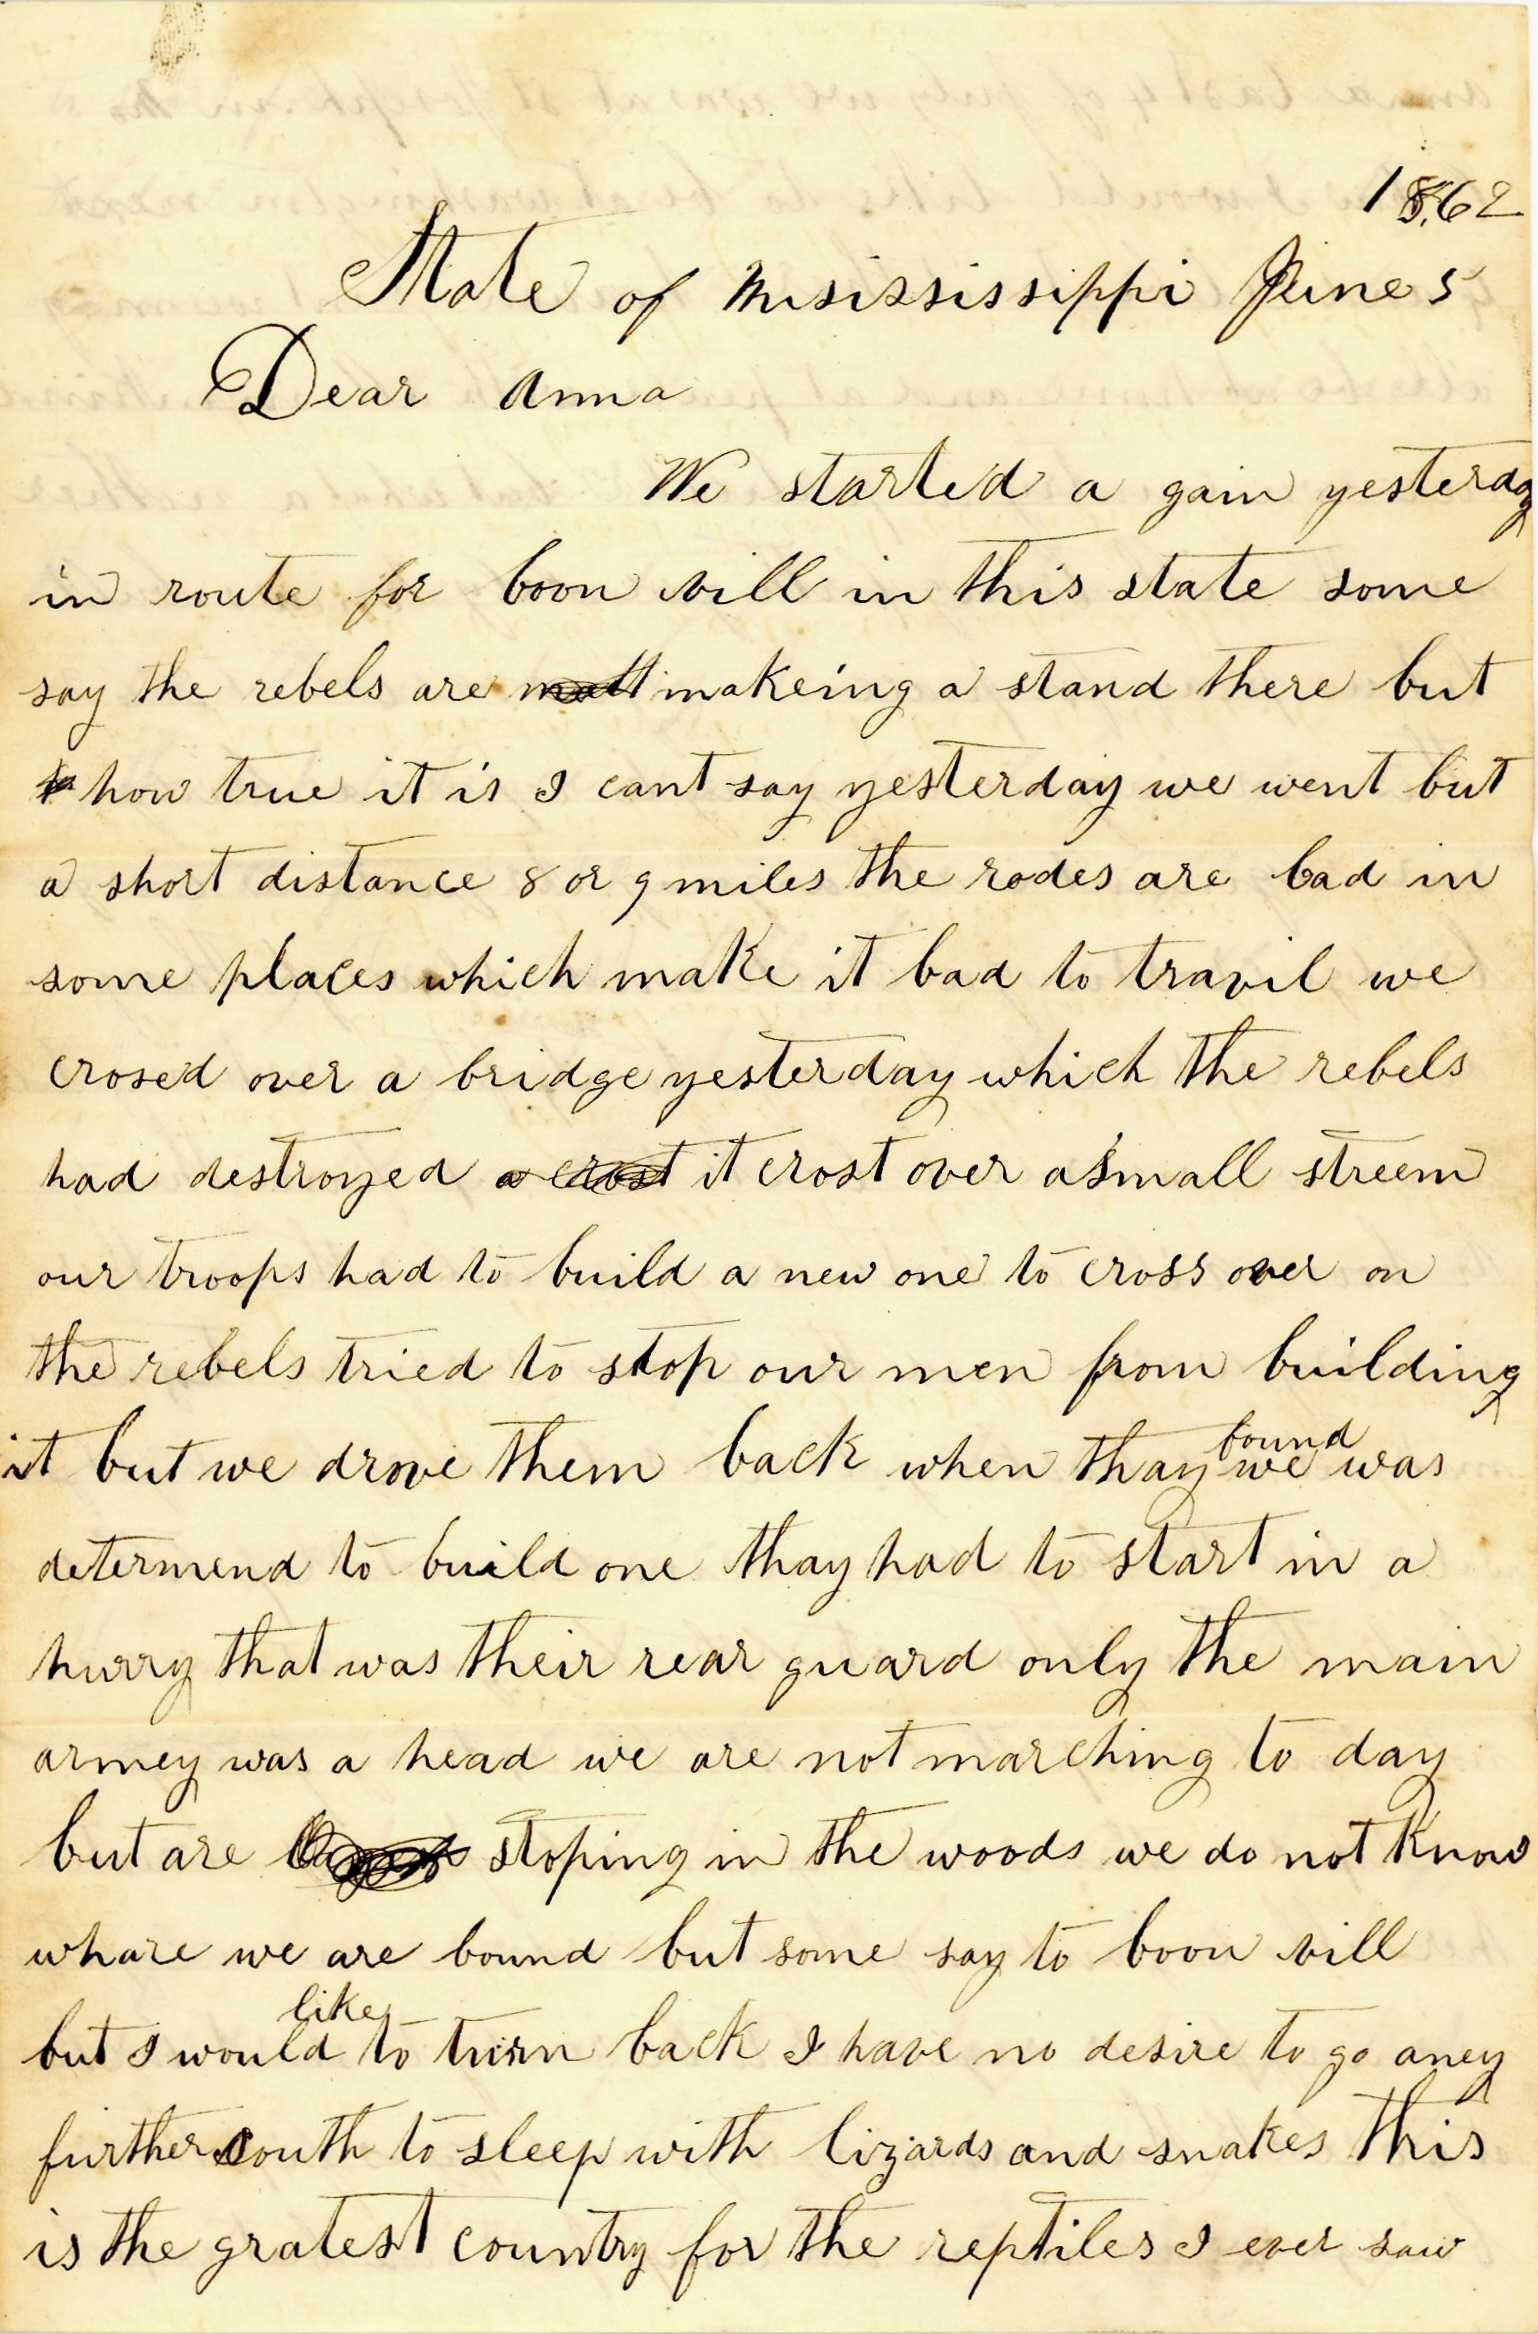 1862
State of Missississippi June 5
Dear Anna
We started a gain yesterday
in route for boon vill in this state some
say the rebels are makeing a stand there but
how true it is I cant say yesterday we went but
a short distance 8 or 9 miles the rodes are bad in
some places which make it bad to travil we
crosed over a bridge yesterday which the rebels
had destroyed a crost it crost over a small streem
our troops had to build a new one to cross over on
the rebels tried to stop our men from building
it but we drove them back when thay found we was
determend to build one thay had to start in a
hurry that was their rear guard only the main
armey was a head we are not marching to day
but are stoping in the woods we do not know
whare we are bound but some say to boon vill
but I would like to turn back I have no desire to go aney
further south to sleep with lizards and snakes this
is the gratest country for the reptiles I ever saw